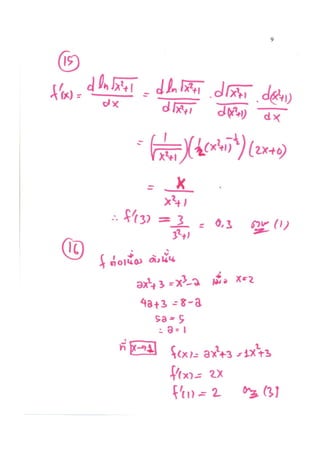 9
(15)
f'(x) = d ln √x²+1 / dx = d ln √x²+1 / d √x²+1 · d √x²+1 / d(x²+1) · d(x²+1) / dx
= (1/√x²+1)(½(x²+1)^-½)(2x+0)
= x / x²+1 .
∴ f'(3) = 3 / 3²+1 = 0.3 ตอบ (1)
(16)
f ต่อเนื่อง ดังนั้น
ax²+3 = x³-a เมื่อ x=2
4a+3 = 8-a
5a = 5
∴ a = 1
ที่ x→1 f(x) = ax²+3 = 1x²+3
f'(x) = 2x
f'(1) = 2 ตอบ (3)